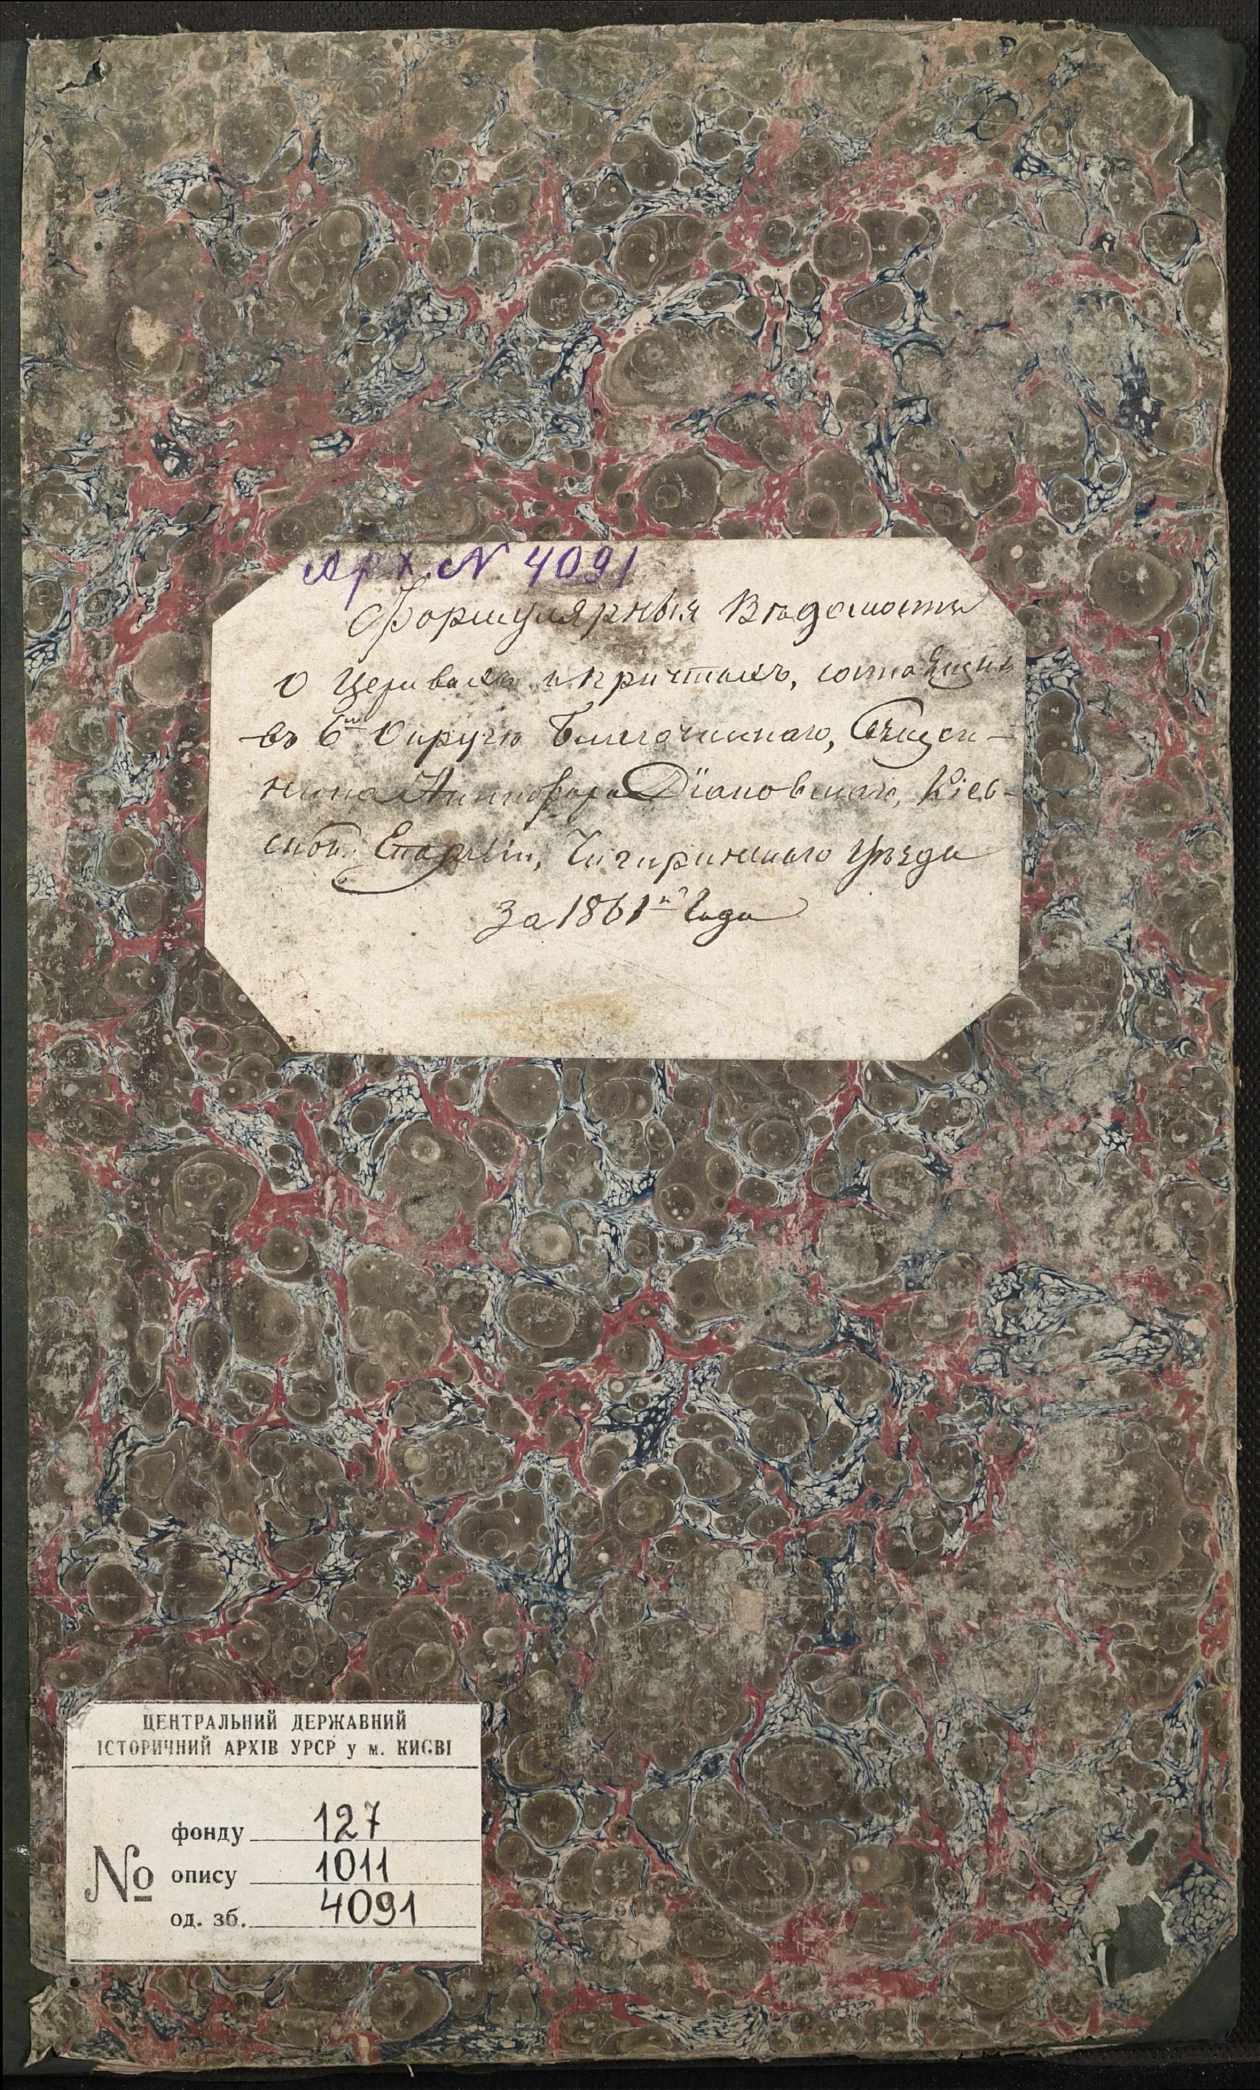 Арх. № 4091
Формулярныя Вѣдомости
о Церквахъ и причтахъ, состоящихъ
въ 6м Округѣ Благочиннаго, Священ-
ника Діаковскаго, Кіев-
ской Епархіи, Чигиринскаго уѣзда
За 1861й Годъ
ЦЕНТРАЛЬНИЙ ДЕРЖАВНИЙ
ІСТОРИЧНИЙ АРХІВ УРСР у м. КИЄВІ
№
фонду 127
опису 1011
од. зб. 4091